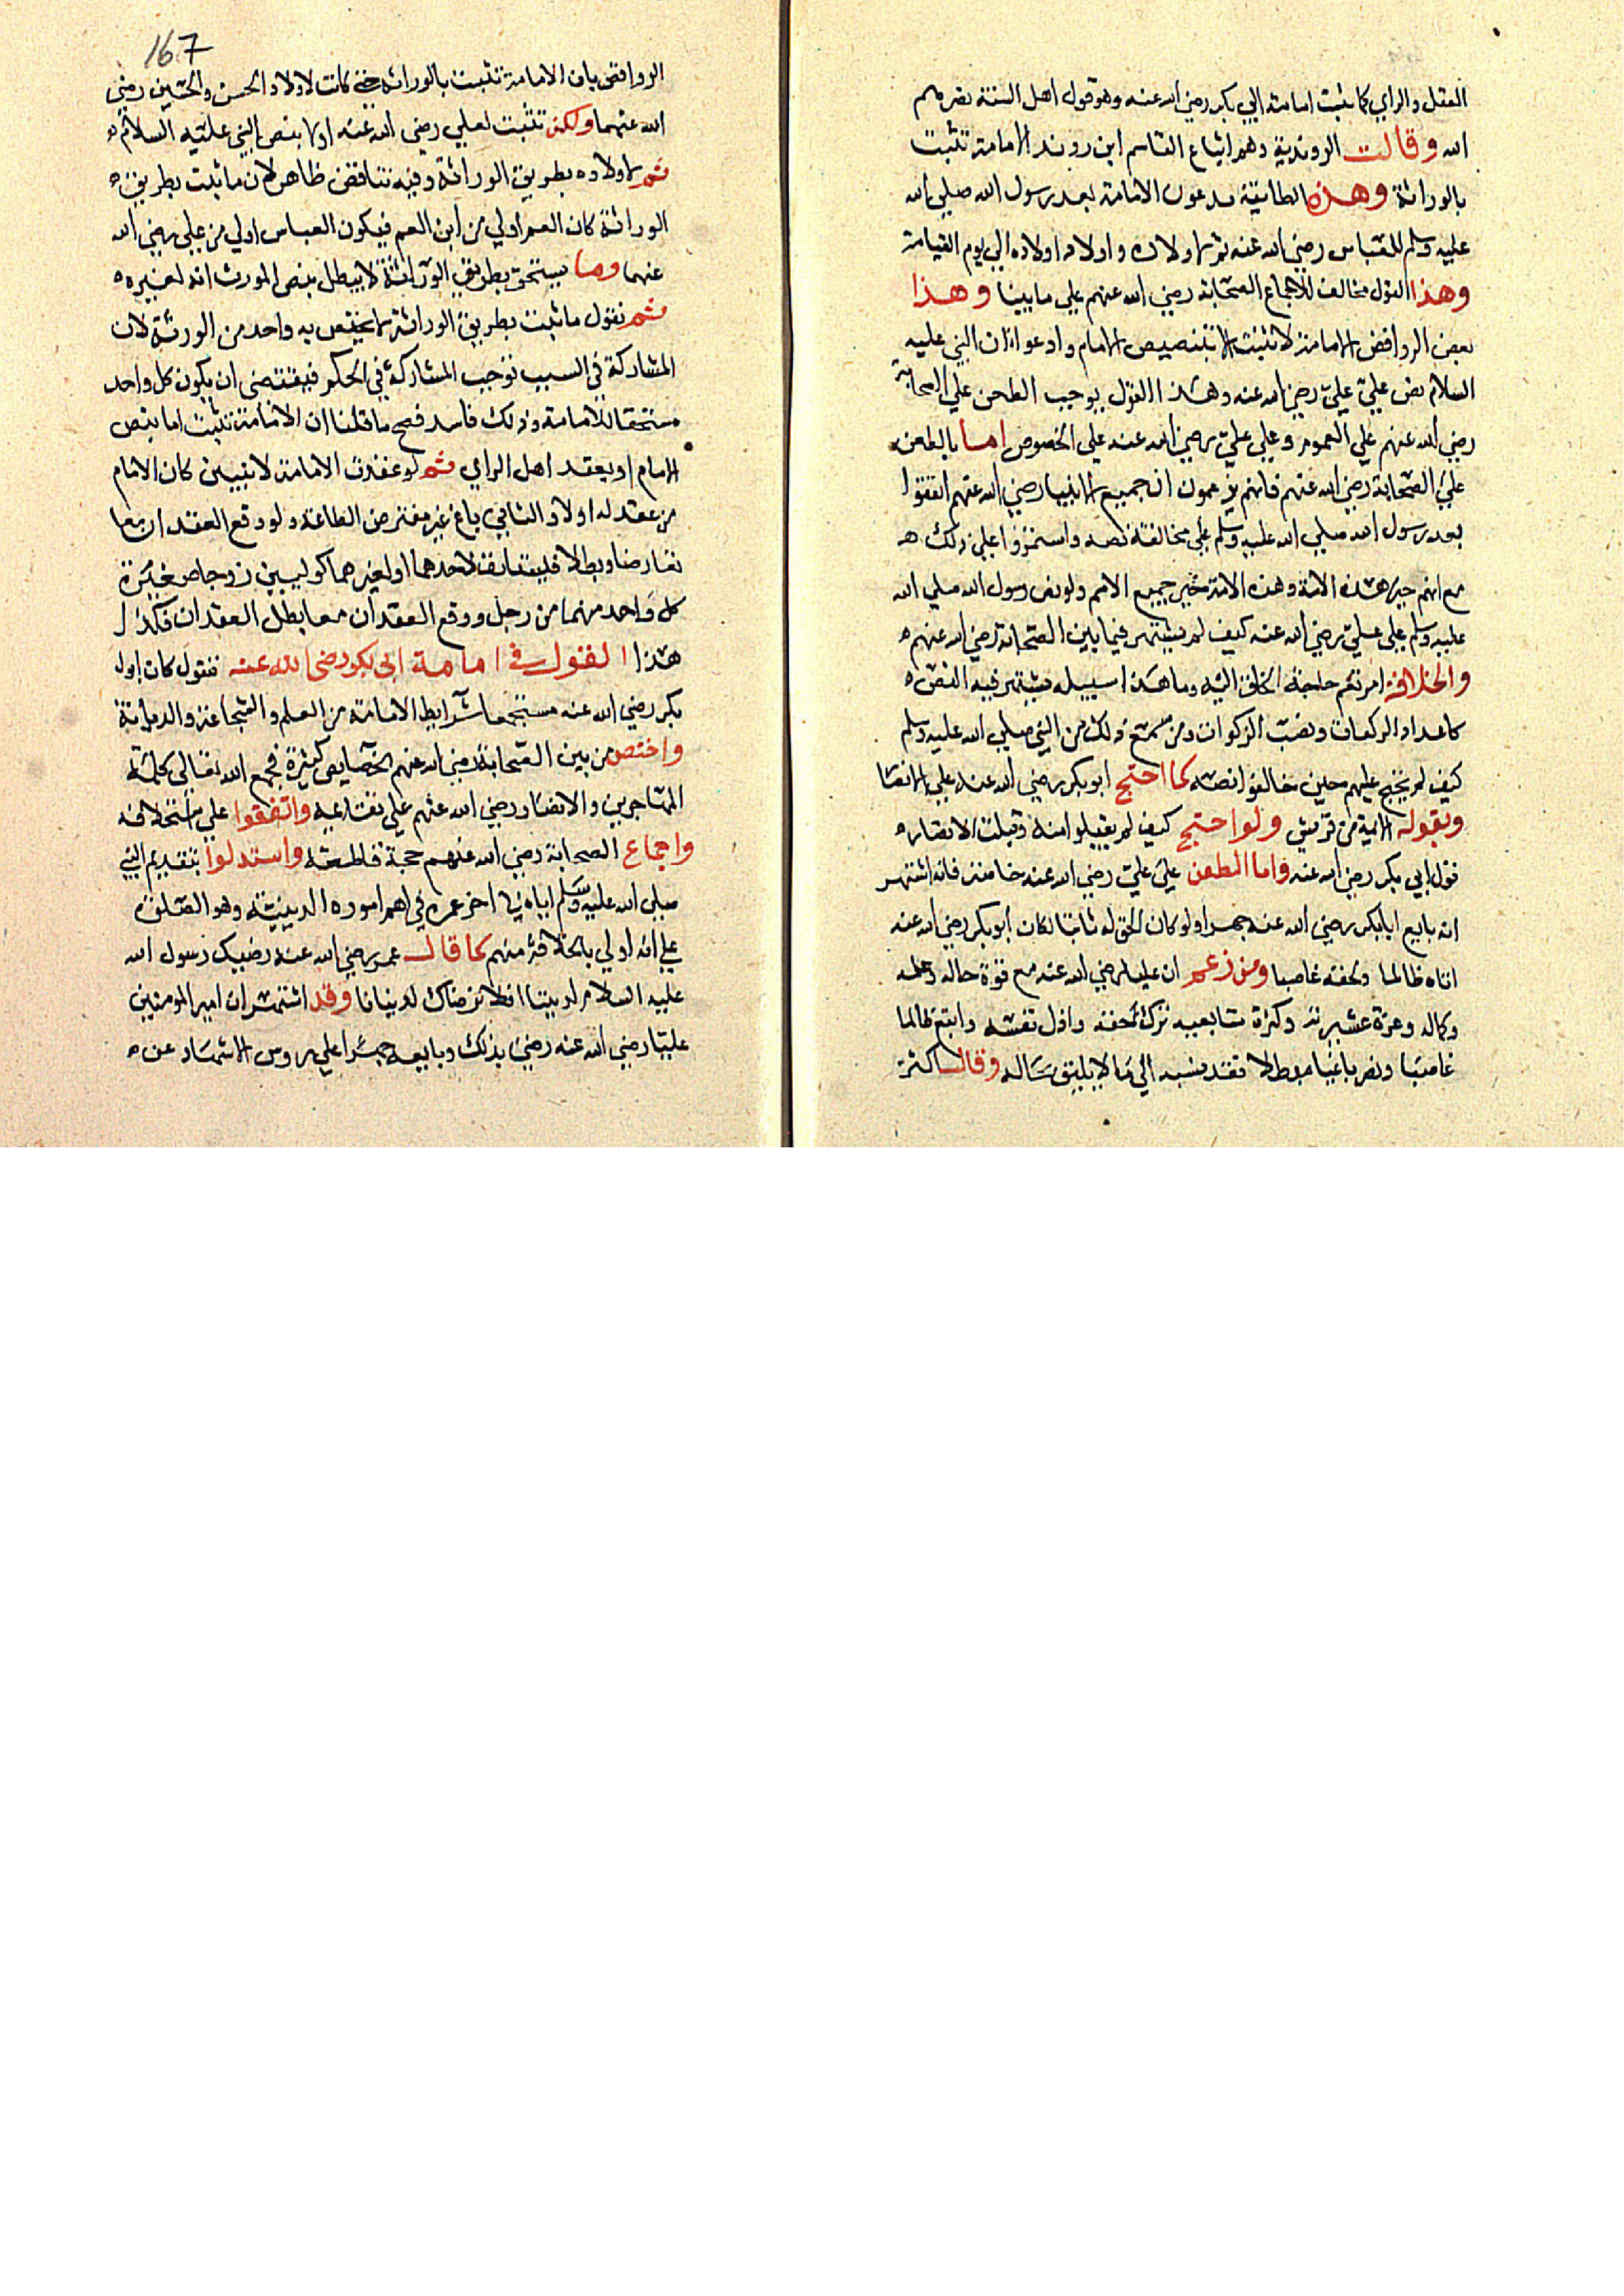 العقل والراي كما يثبت امامة ابي بكر رضي الله عنه وهو قول اهل السنة نصرهم
الله وقالت الروندية وهم اتباع القاسم ابن روند الامامة تثبت
بالوراثة وهذه الطائفة يدعون الامامة بعد رسول الله صلي الله
عليه وسلم للعباس رضي الله عنه ثم لاولاده واولاد اولاده الي يوم القيامة
وهذا القول مخالف للاجماع الصحابة رضي الله عنهم علي ما بينا وهذا
بعض الروافض الامامة لا تثبت الا بتنصيص الامام وادعوا ان النبي عليه
السلام نص علي علي رضي الله عنه وهذا القول يوجب الطعن علي الصحابة
رضي الله عنهم علي العموم وعلي علي رضي الله عنه علي الخصوص اما بالطعن
علي الصحابة رضي الله عنهم فانهم يزعمون ان جميع رضي الله عنهم اتفقوا
بعد رسول الله صلي الله عليه وسلم علي مخالفة نصه واستمروا علي ذلك
مع انهم خير هذه الامة وهذه الامة خير جميع الامم ولو نص رسول الله صلي الله
عليه وسلم علي علي رضي الله عنه كيف لم يشتهر فيما بين الصحابة رضي الله عنهم
والخلافة امر تعم حاجة الخلق اليه وما هذا سبيله يشتهر فيه النص
كاعداد الركعات ونصب الزكوات ومن سمع ذلك من النبي صلي الله عليه وسلم
كيف لم يحتج عليهم حين خالفوا نصه كما احتج ابو بكر رضي الله عنه علي الانصار
وبقوله الايمة من قريش ولو احتج كيف لم يقبلوا منه وقبلت الانصار
قول ابي بكر رضي الله عنه واما الطعن علي علي رضي الله عنه خاصة فانه اشتهر
انه بايع ابا بكر رضي الله عنه جهرا ولو كان الحق له ثابتا لكان ابو بكر رضي الله عنه
اتاه ظالما ولحقه غاصبا ومن زعم ان عليا رضي الله عنه مع قوة حاله وعلمه
وكماله وعزة عشيرته وكثرة متابعيه ترك حقه واذل نفسه واتبع ظالما
غاصبا ونصر باغيا مبطلا فقد نسبه الي ما لا يليق بحاله وقالت اكثر
167
الروافض بان الامامة تثبت بالوراثة حتي كانت لاولاد الحسن والحسين رضي
الله عنهما ولكن تثبت لعلي رضي الله عنه اولا بنص النبي عليه السلام
ثم لاولاده بطريق الوراثة وفيه تناقض ظاهر لان ما يثبت بطريق
الوراثة كان العم اولي من ابن العم فيكون العباس اولي من علي رضي الله
عنهما وما يستحق بطريق الوراثة لا يبطل بنص المورث انه لغيره
ثم نقول ما ثبت بطريق الوراثة لا يختص به واحد من الورثة لان
المشاركة في السبب توجب المشاركة في الحكم فيقتضي ان يكون كل واحد
مستحقا للامامة وذلك فاسد فصح ما قلنا ان الامامة تثبت اما بنص
الامام او بعقد اهل الراي ثم لو عقدت الامامة لاثنين كان الامام
من عقد له اولا والثاني باغ غير مفترض الطاعة ولو وقع العقدان معا
تعارضا وبطلا فليستانف لاحدهما او لغيرهما كوليين زوجا صغيرة
كل واحد منهما من رجل ووقع العقدان معا بطل العقدان فكذا
هذا القول في امامة ابي بكر رضي الله عنه فنقول كان ابو
بكر رضي الله عنه مستجمعا شرايط الامامة من العلم والشجاعة والديانة
واختص من بين الصحابة رضي الله عنهم بخصايص كثيرة فجمع الله تعالي كلمة
المهاجرين والانصار رضي الله عنهم علي واتفقوا علي استخلافه
واجماع الصحابة رضي الله عنهم حجة قاطعة واستدلوا بتقديم النبي
صلي الله عليه وسلم اياه في اخر عمره في اهم اموره الدينية وهو الصلوة
علي انه اولي بالخلافة منهم كما قال عمر رضي الله عنه رضيك رسول الله
عليه السلام لديننا افلا نرضاك لدنيانا وقد اشتهر ان امير المومنين
عليا رضي الله عنه رضي بذلك وبايعه جهرا علي روس الاشهاد عن